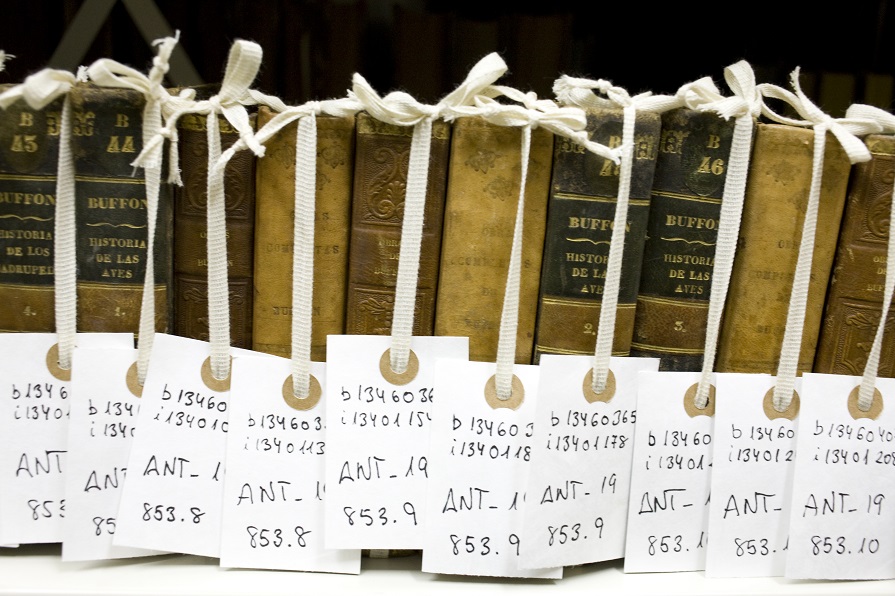 B
45
BUFFON
HISTORIA
DE LOS
4.
B
44
BUFFON
HISTORIA
DE LAS
AVES
1.
OBRAS
COMPLETAS
OBRAS
BUFFON
HISTORIA
DE LA
AVES
2.
B
46
BUFFON
HISTORIA
DE LAS
AVES
3.
b13460
i13401
ANT
853
b1346
i1340
ANT
85
b13460
i13401
ANT_1
853.8
b134603
i1340113
ANT_1
853.8
b1346036
i1340115
ANT_19
853.9
b134603
i1340118
ANT_1
853.9
b13460365
i13401178
ANT_19
853.9
b13460
i13401
ANT_
853.1
b13460
i134012
ANT_
853.1
b1346040
i1340120
ANT_19
853.10